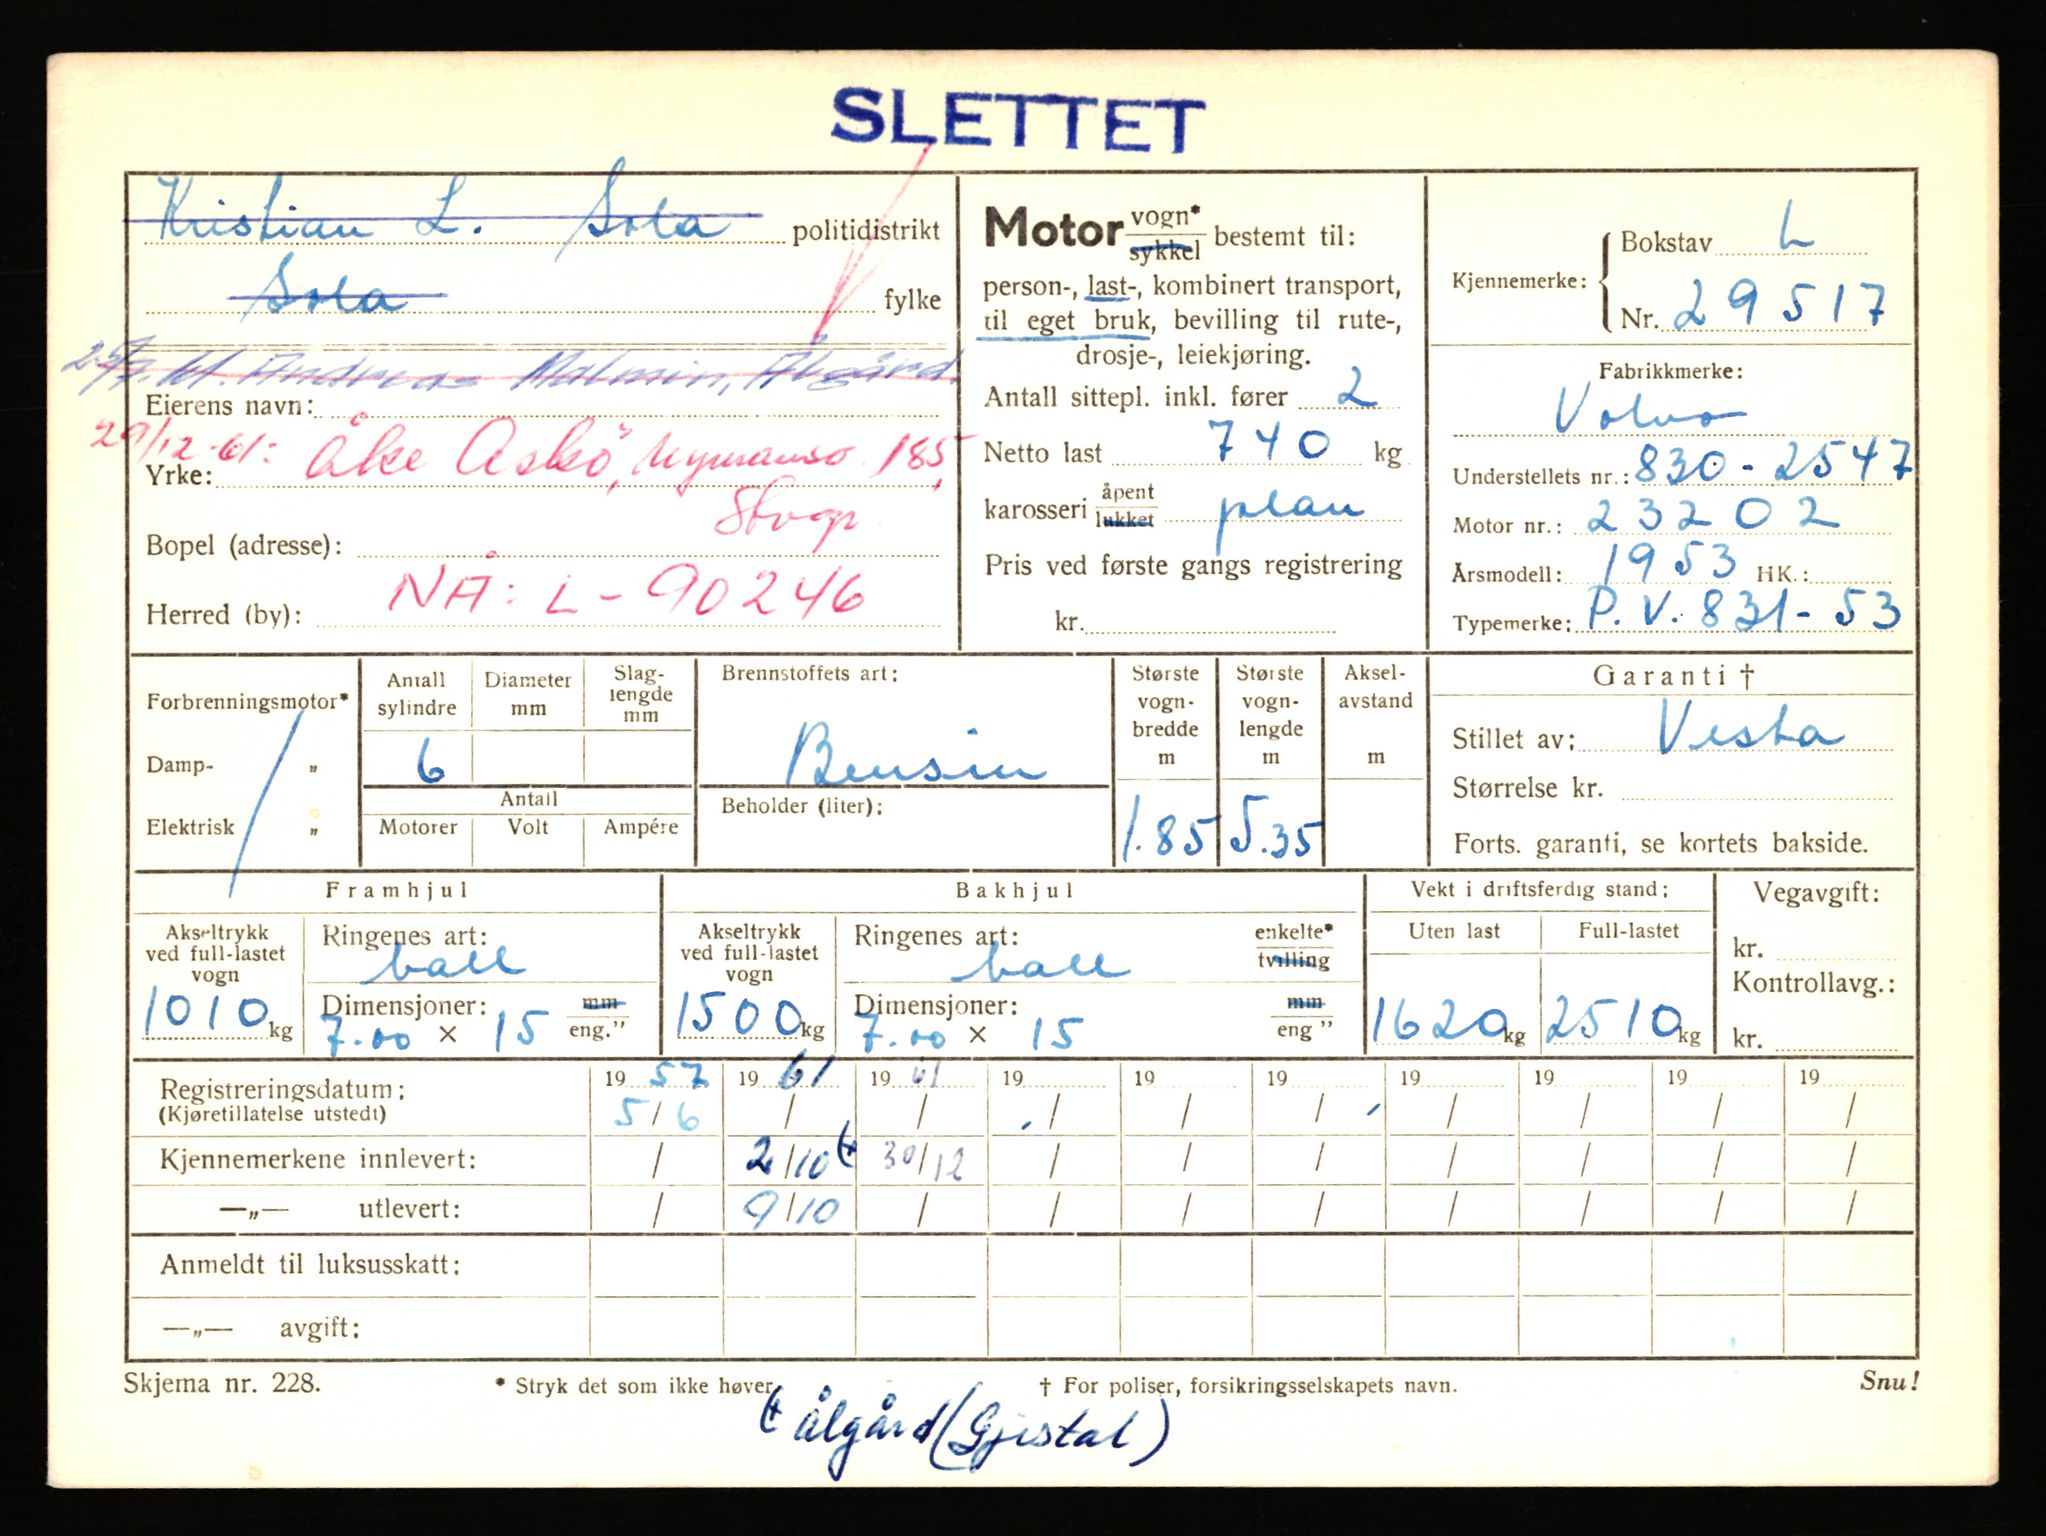 SLETTET
Kristian L. Sola politidistrikt
Sola fylke
Andreas Malmin, Ålgård.
Eierens navn:
29/12-61: Åke Askö,
185,
Yrke:
Stvgr.
Bopel (adresse):
NÅ: L-90246
Herred (by):
Motor vogn* sykkel bestemt til:
person-, last-, kombinert transport,
til eget bruk, bevilling til rute-,
drosje-, leiekjøring.
Antall sittepl. inkl. fører 2
Netto last 740 kg
karosseri åpent lukket plan
Pris ved første gangs registrering
kr.
Kjennemerke: Bokstav L
Nr. 29517
Fabrikkmerke:
Volvo
Understellets nr.: 830-2547
Motor nr.: 23202
Årsmodell: 1953 HK.:
Typemerke: P.V. 831-53
Forbrenningsmotor*
Damp- „
Elektrisk „
Antall sylindre
6
Diameter mm
Slag-lengde mm
Antall
Motorer Volt Ampére
Brennstoffets art:
Bensin
Beholder (liter):
Største vogn-bredde m
1.85
Største vogn-lengde m
5.35
Aksel-avstand m
Garanti †
Stillet av: Vesta
Størrelse kr.
Forts. garanti, se kortets bakside.
Framhjul
Akseltrykk ved full-lastet vogn
1010 kg
Ringenes art:
ball
Dimensjoner: mm
7.00 × 15 eng."
Bakhjul
Akseltrykk ved full-lastet vogn
1500 kg
Ringenes art: enkelte*
ball tvilling
Dimensjoner: mm
7.00 × 15 eng "
Vekt i driftsferdig stand:
Uten last Full-lastet
1620 kg 2510 kg
Vegavgift:
kr.
Kontrollavg.:
kr.
Registreringsdatum: 19 57 19 61 19 61 19 19 19 19 19 19 19
(Kjøretillatelse utstedt) 5/6 / / / / / / / / /
Kjennemerkene innlevert: / 2/10 (+ 30/12 / / / / / / /
—„— utlevert: / 9/10 / / / / / / / /
Anmeldt til luksusskatt:
—„— avgift:
Skjema nr. 228. * Stryk det som ikke høver. † For poliser, forsikringsselskapets navn. Snu!
(+ Ålgård (Gjestal)